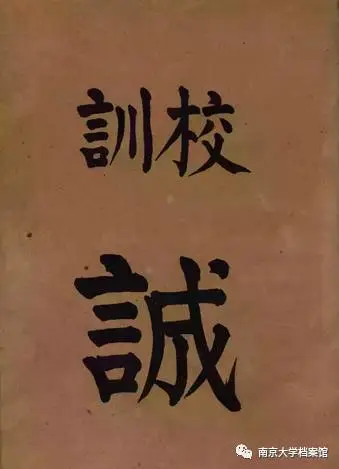 校訓
誠
南京大学档案馆